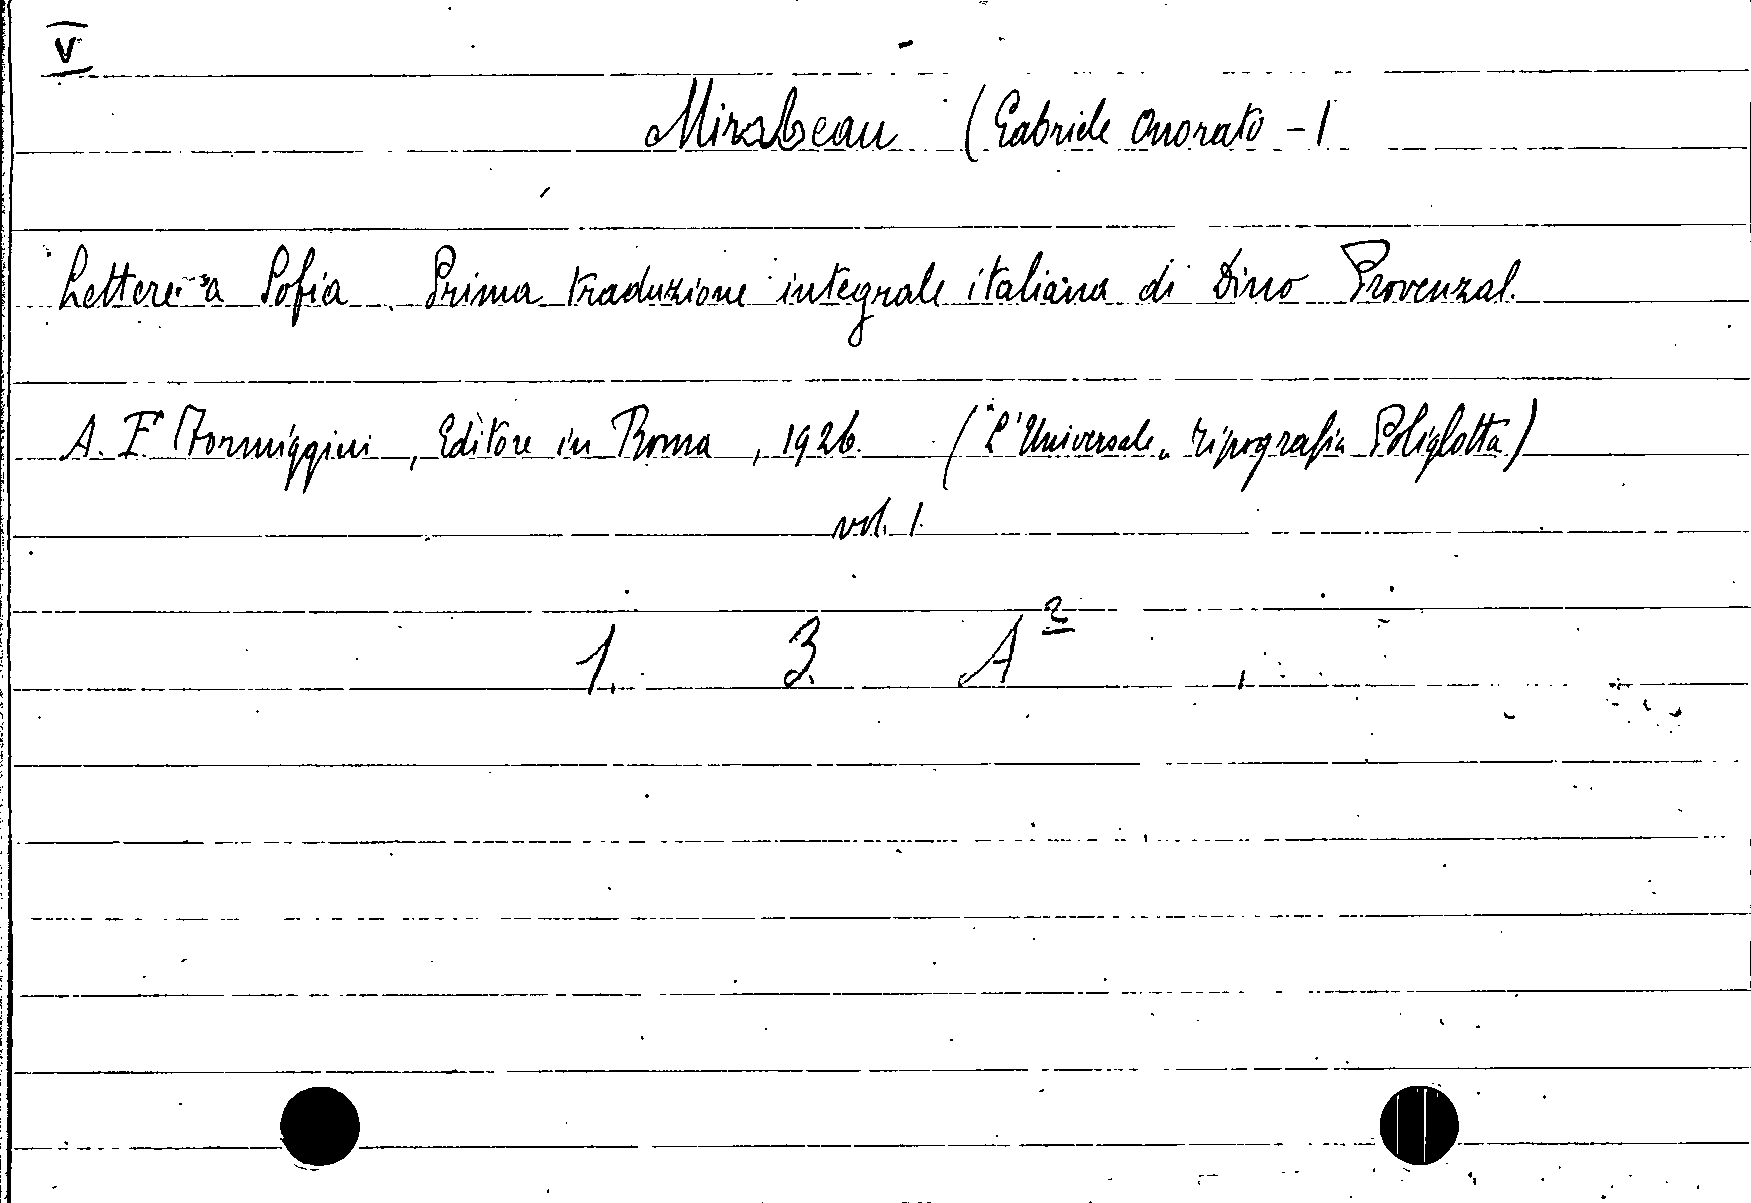 V
Mirabeau (Gabriele Onorato -)
Lettere a Sofia. Prima traduzione integrale italiana di Dino Provenzal.
A. F. Formiggini, Editore in Roma, 1926. ("L'Universale" Tipografia Poliglotta)
vol. 1.
1. 3. A²